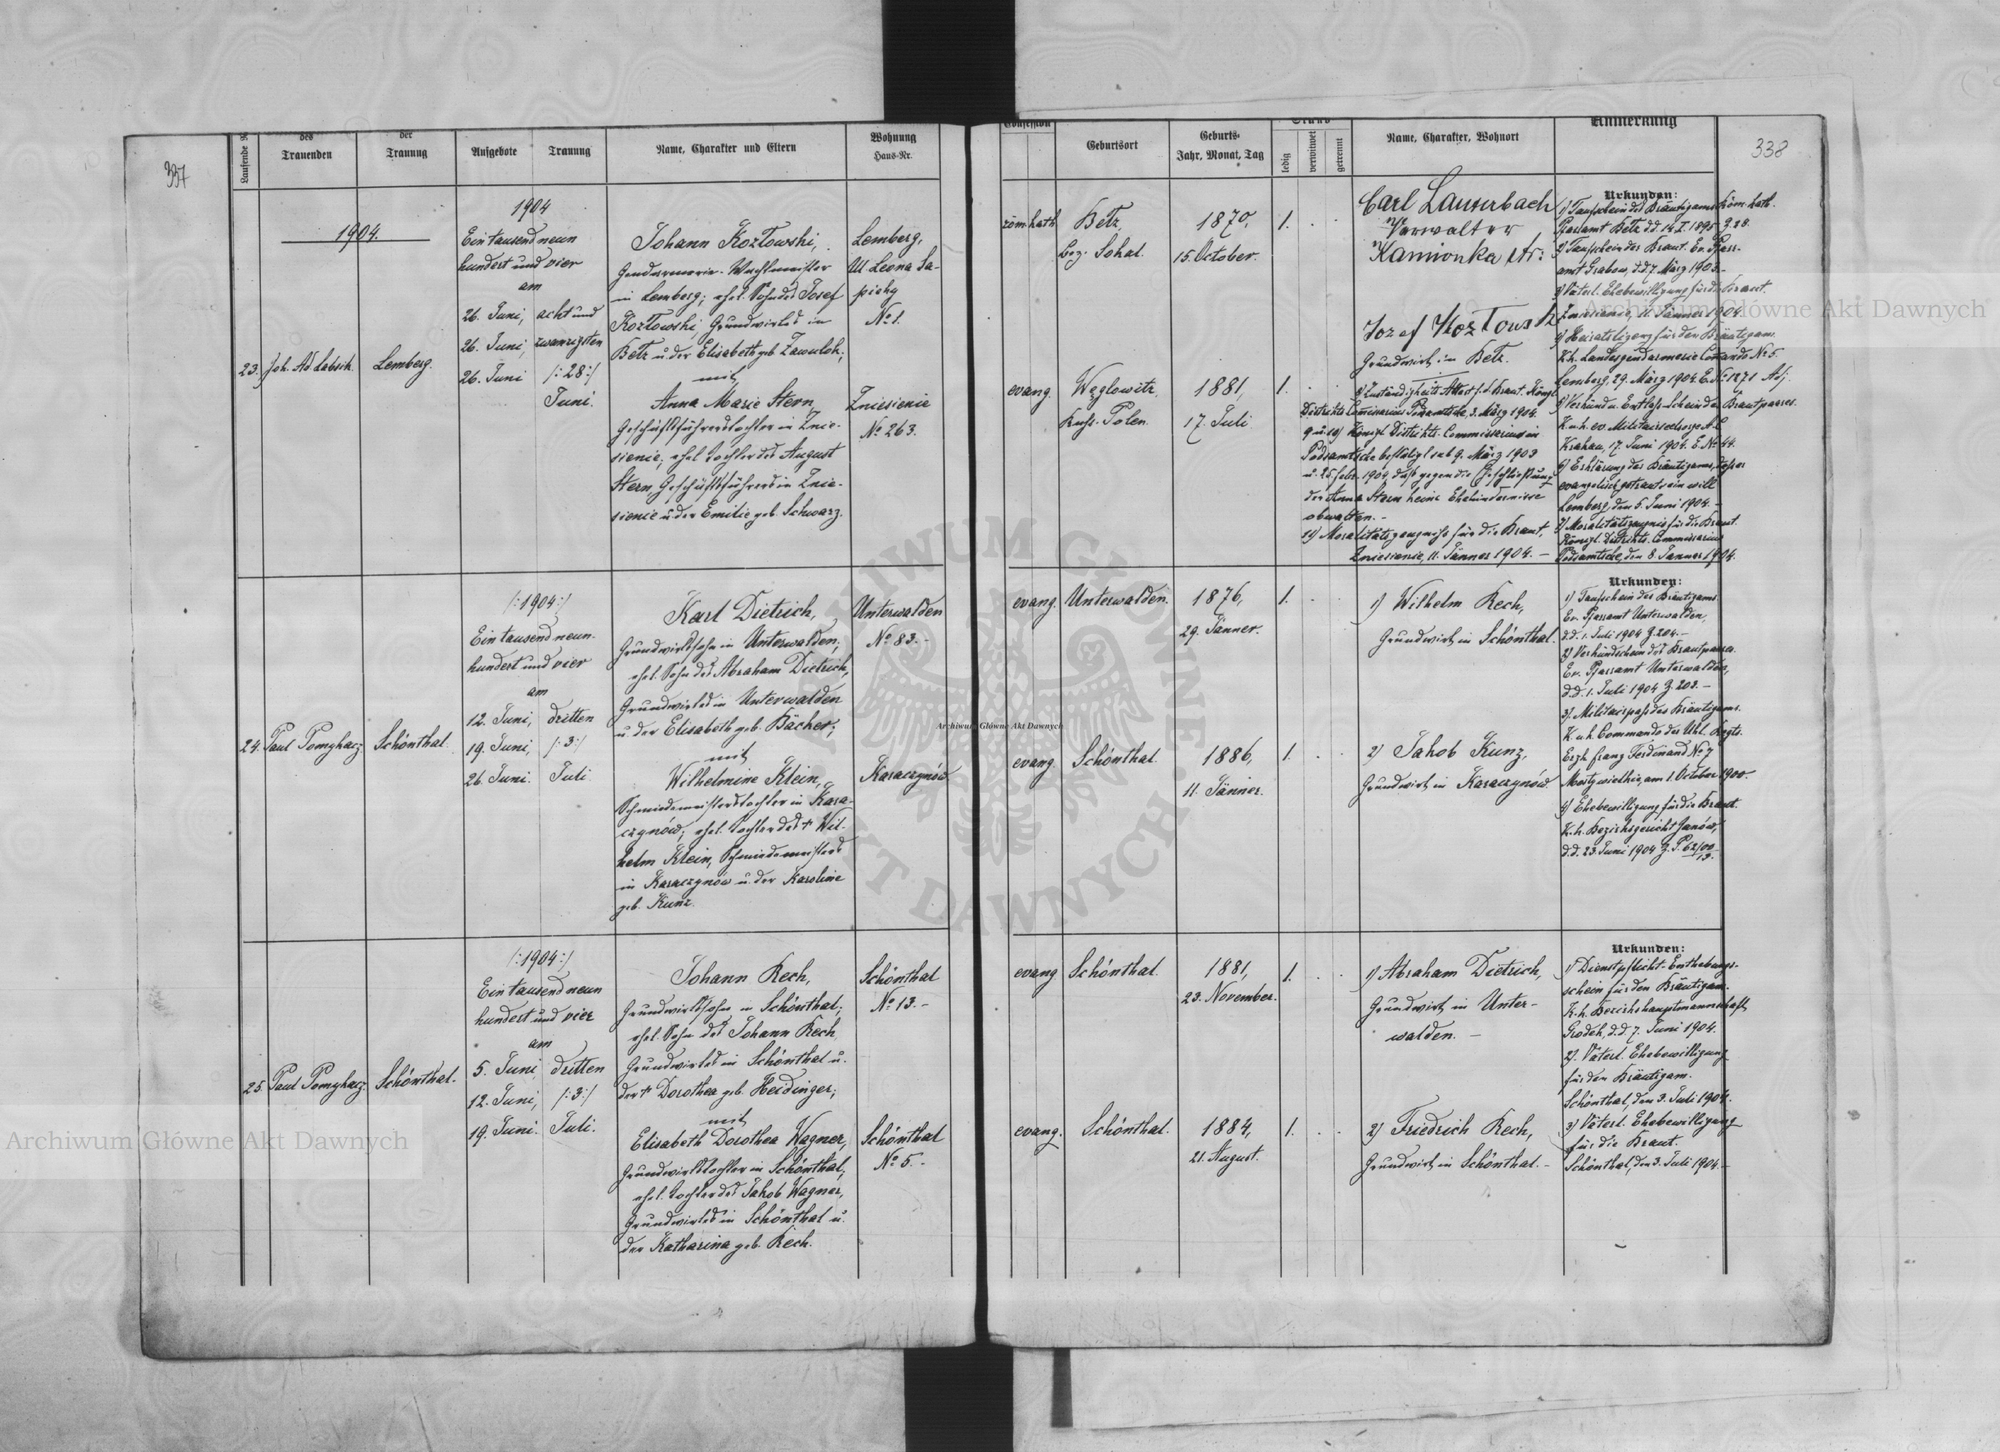 337
Laufende N
des
Trauenden
der
Trauung
Aufgebote
Trauung
Name, Charakter und Eltern
Wohnung
Haus-Nr.
1904.
23.
Joh. Ad. Labsik.
Lemberg.
1904
Ein tausend neun
hundert und vier
am
26. Juni, acht und
26. Juni, zwanzigsten
26. Juni /:28:/
Juni.
Johann Kozłowski,
Gendarmerie-Wachtmeister
in Lemberg; ehel. Sohn des Josef
Kozłowski Grundwirtes in
Betz u. der Elisabeth geb. Zawulok;
mit
Anna Marie Stern,
Geschäftsführerstochter in Znie-
sienie, ehel. Tochter des August
Stern Geschäftsführers in Znie-
sienie u. der Emilie geb. Schwarz.
Lemberg,
Ul. Leona Sa-
piehy
No 1.
Zniesienie
No 263.
24.
Paul Pomykacz
Schönthal.
/:1904:/
Ein tausend neun-
hundert und vier
am
12. Juni, dritten
19. Juni, /:3:/
26. Juni. Juli
Karl Dietrich,
Grundwirtssohn in Unterwalden;
ehel. Sohn des Abraham Dietrich,
Grundwirtes in Unterwalden
u. der Elisabeth geb. Bächer;
mit
Wilhelmine Klein,
Schmiedemeisterstochter in Kara-
czynów; ehel. Tochter des † Wil-
helm Klein, Schmiedemeisters
in Karaczynów u. der Karoline
geb. Kunz.
Unterwalden
No 83.-
Karaczynów
25.
Paul Pomykacz
Schönthal.
/:1904:/
Ein tausend neun
hundert und vier
am
5. Juni, dritten
12. Juni, /:3:/
19. Juni. Juli.
Johann Rech,
Grundwirtssohn in Schönthal;
ehel. Sohn des Johann Rech,
Grundwirtes in Schönthal u.
der † Dorothea geb. Heidinger;
mit
Elisabeth Dorothea Wagner,
Grundwirtstochter in Schönthal,
ehel. Tochter des Jakob Wagner,
Grundwirtes in Schönthal u.
der Katharina geb. Rech.
Schönthal
No 13.-
Schönthal
No 5.-
338
Confession
Geburtsort
Geburts-
Jahr, Monat, Tag
Stand
ledig
verwitwet
getrennt
Name, Charakter, Wohnort
Anmerkung
röm. kath.
Betz,
Bez. Sokal.
1870,
15. October.
1.
evang.
Węglowitz
Russ. Polen.
1881,
17. Juli
1.
Carl Lauterbach
Verwalter
Kamionka str:
Jozef Kozłowski
Grundwirt in Betz.
8) Zuständigkeits Attest f. d. Braut. Königl.
Districts Commissarius Podsamtsche, 3. März 1904.
9 u. 10) Königl. Districts-Commissarius in
Podsamtsche bestätigt sub 9. März 1903
u. 25. Febr. 1904, daß gegen die Eheschließung
der Anna Stern keine Ehehindernisse
obwalten.-
11) Moralitätszeugniß für die Braut,
Zniesienie, 11. Jänner 1904.-
Urkunden:
1) Taufschein des Bräutigams Röm. kath.
Pfarramt Betz d.d. 14. I. 1895 Z. 28.
2) Taufschein der Braut. Ev. Pfarr-
amt Grabow, d.d. 7. März 1903.-
3) Väterl. Ehebewilligung für die Braut.
Zniesienie, 11. Jänner 1904.
4) Heiratslizenz für den Bräutigam.
K.k. Landesgendarmerie Comando No 5.
Lemberg, 29. März 1904. E. No 1271 Adj.
5) Verkünd u. Entlaß-Schein des Brautpaares.
K.u.k. ev. Militairseelsorge A.C.
Krakau, 17. Juni 1904. E. No 44.
6) Erklärung des Bräutigams, daß er
evangelisch getraut sein will
Lemberg, den 5. Juni 1904.-
7) Moralitätszeugnis für die Braut.
Königl. Districts-Commissarius
Podsamtsche, den 8. Janner 1904.
evang.
Unterwalden.
1876,
29. Jänner.
1.
evang.
Schönthal.
1886,
11. Jänner.
1.
1) Wilhelm Rech,
Grundwirt in Schönthal.
2) Jakob Kunz,
Grundwirt in Karaczynów.
Urkunden:
1) Taufschein des Bräutigams.
Ev. Pfarramt Unterwalden,
d.d. 1. Juli 1904 Z. 204.-
2) Verkündschein des Brautpaares.
Ev. Pfarramt Unterwalden,
d.d. 1. Juli 1904 Z. 203.-
3) Militairpaß des Bräutigams.
K.u.k. Commando des Uhl. Regts.
Erzh. Franz Ferdinand No 7
Mosty wielkie, am 1. October 1900.-
4) Ehebewilligung für die Braut.
K.k. Bezirksgericht Janów,
d.d. 23. Juni 1904 Z. P. 62/00
13.
evang
Schönthal.
1881,
23. November.
1.
evang.
Schönthal.
1884,
21. August.
1.
1) Abraham Dietrich,
Grundwirt in Unter-
walden.-
2) Friedrich Rech,
Grundwirt in Schönthal.-
Urkunden:
1) Dienstpflicht-Enthebungs-
schein für den Bräutigam.
K.k. Bezirkshauptmannschaft
Grodek, d.d. 7. Juni 1904.
2) Väterl. Ehebewilligung
für den Bräutigam.
Schönthal, den 3. Juli 1904.
3) Väterl. Ehebewilligung
für die Braut.
Schönthal, den 3. Juli 1904.-
Archiwum Główne Akt Dawnych
Archiwum Główne Akt Dawnych
Archiwum Główne Akt Dawnych
ARCHIWUM GŁÓWNE AKT DAWNYCH